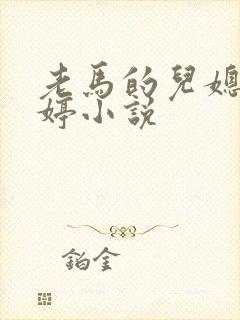 老馬的兒媳
婷小說
鉑金